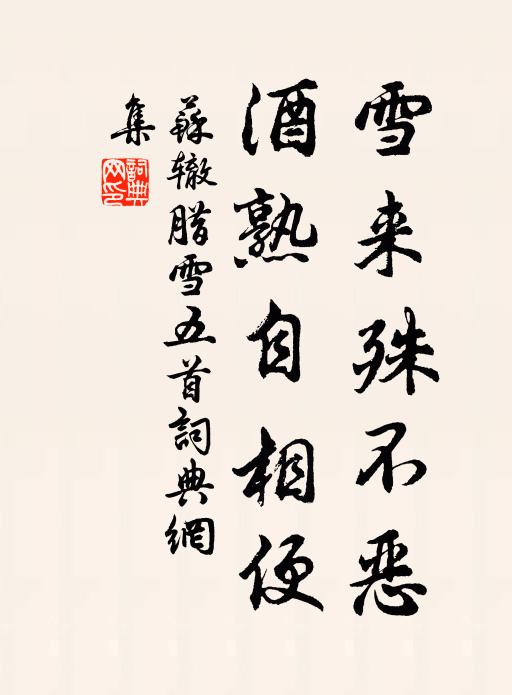 雪来殊不恶
酒熟自相便
蘇辙腊雪五首詞典網
集
詞典网印